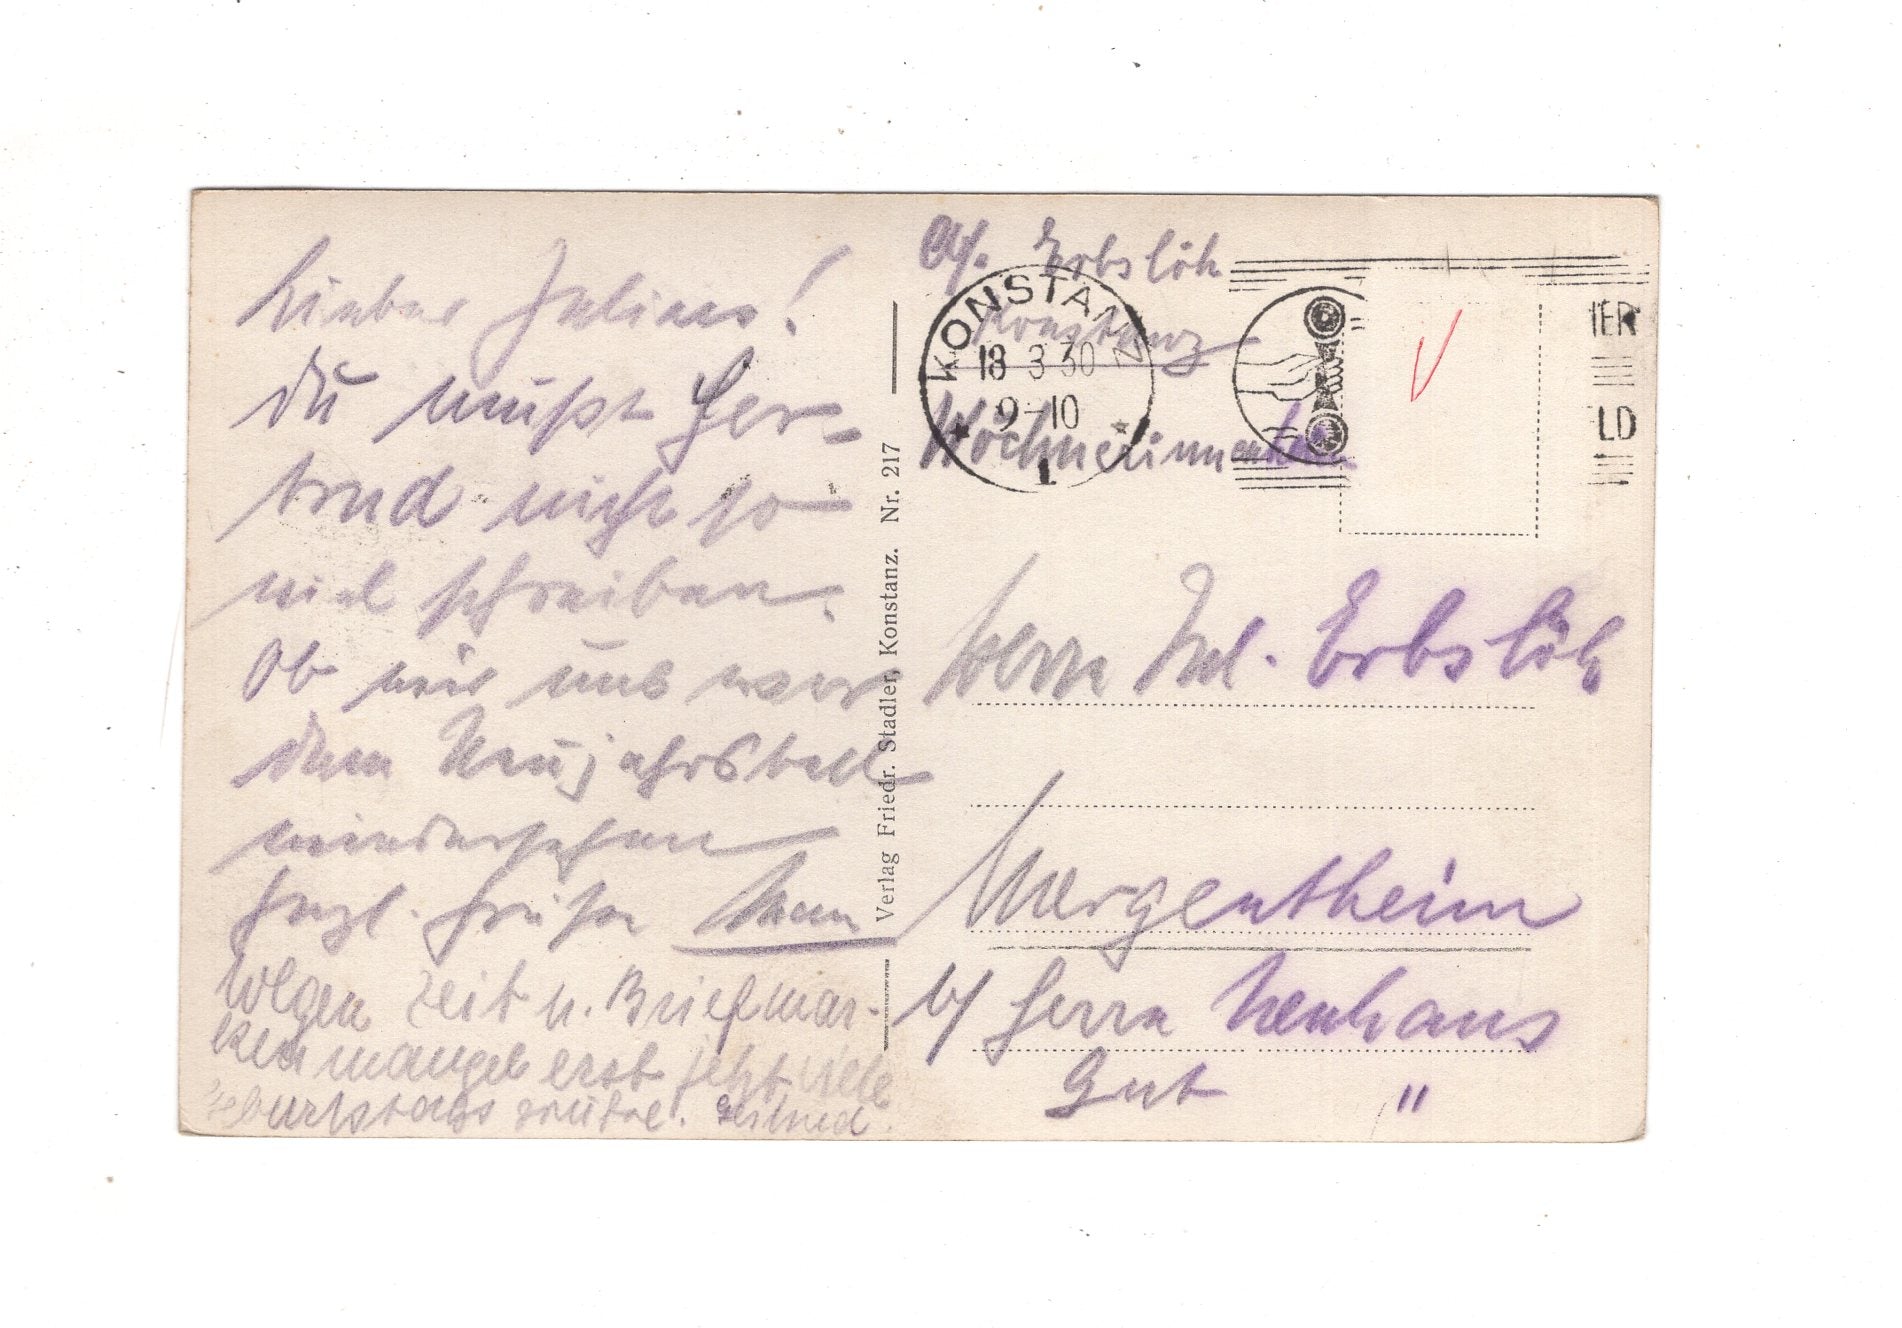 Lieber Julius!
Du mußt Ger-
trud nicht so
viel schreiben.
Ob wir uns vor
dem Neujahrsball
wiedersehen
Herzl. Grüße
Wegen Zeit u. Briefmar-
kenmangel erst jetzt viele
Geburtstagsgrüße.
Verlag Friedr. Stadler, Konstanz. Nr. 217
Erbslöh
Konstanz
Wöchnerinnenheim
KONSTANZ
18 3 30
9-10
1
IER
LD
Herrn Jul. Erbslöh
Mergentheim
b/ Herrn Neuhaus
Gut "